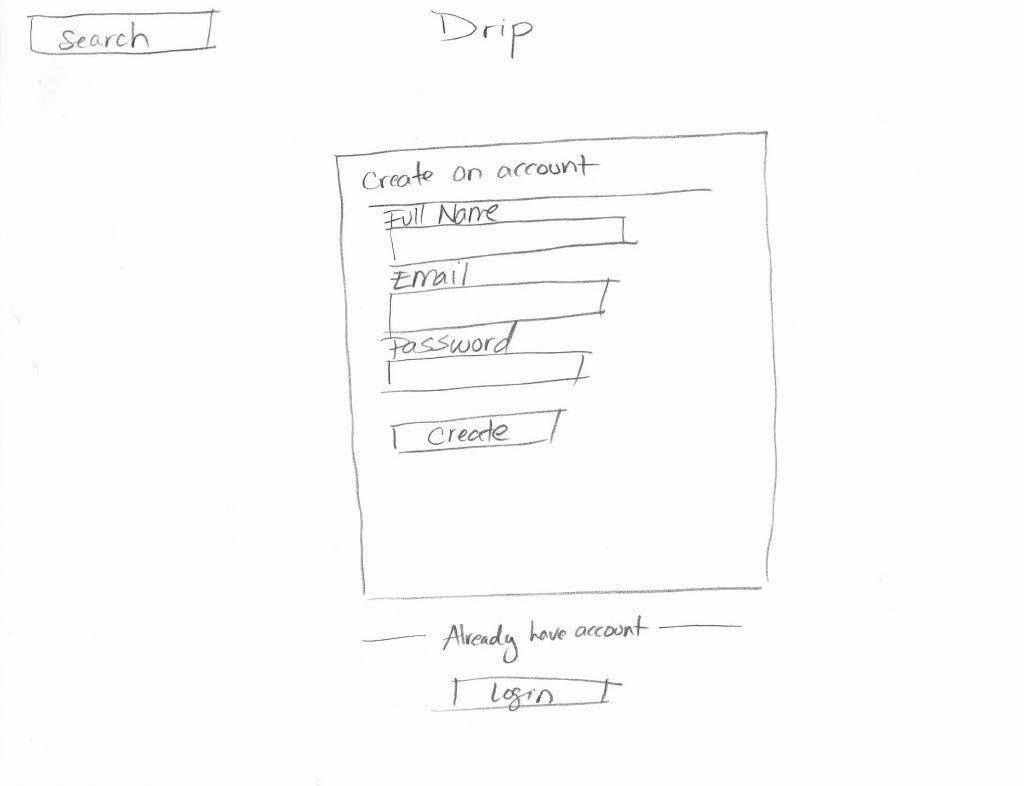 Search
Drip
Create an account
Full Name
Email
Password
Create
Already have account
Login